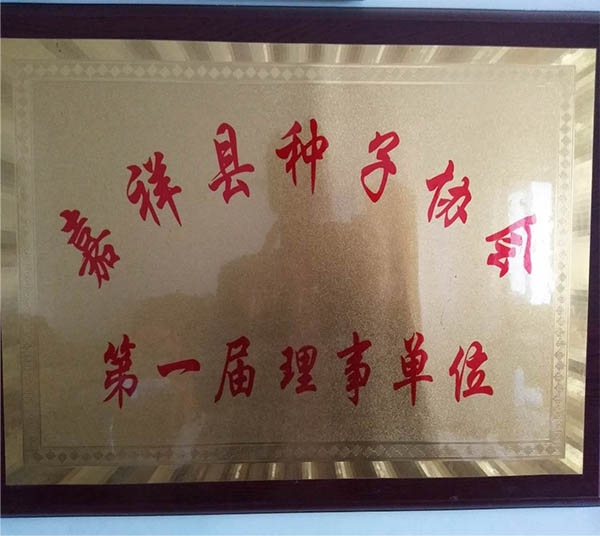 嘉祥县种子协会
第一届理事单位